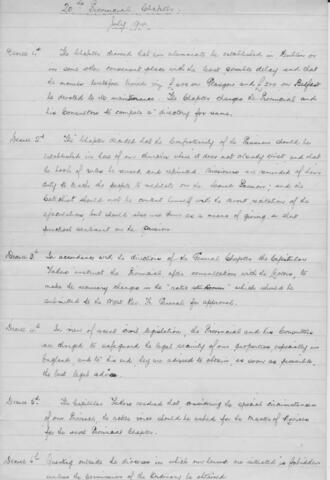 20th Provincial Chapter.
July 19
Decree 1st The Chapter decreed that an alumnate be established in Dublin or
in some other convenient place with the least possible delay and that
the monies heretofore given by £ on Glasgow and £200 on Belfast
be devoted to its maintenance. The Chapter charges the Provincial and
his Consultors to compose a directory for same.
Decree 2d The Chapter decided that the Confraternity of the Passion should be
established in each of our churches where it does not already exist and that
the book of rules be revised and reprinted. are reminded of their
duty to teach the people to meditate on the Sacred Passion; and the
should not be content himself with the recitation of the
but should also use them as a means of giving a short
on the Passion
Decree 3d In accordance with the directions of the General Chapter the Capitular
Fathers instruct the Provincial, after consultation with the Lectors, to
make the necessary changes in the "ratio studiorum" which should be
submitted to the Most Rev. Fr. General for approval.
Decree 4th In view of recent civil legislation, the Provincial and his Consultors
are charged to safeguard the legal security of our properties especially in
England, and to this end, they are advised to obtain, as soon as possible,
the best legal advice.
Decree 5th The Capitular Fathers resolved that considering the special circumstances
of our Province, the active voice should be asked for the Master of Novices
for the next Provincial Chapter.
Decree 6th Questing outside the dioceses in which our houses are situated is forbidden
unless the permission of the Ordinary be obtained